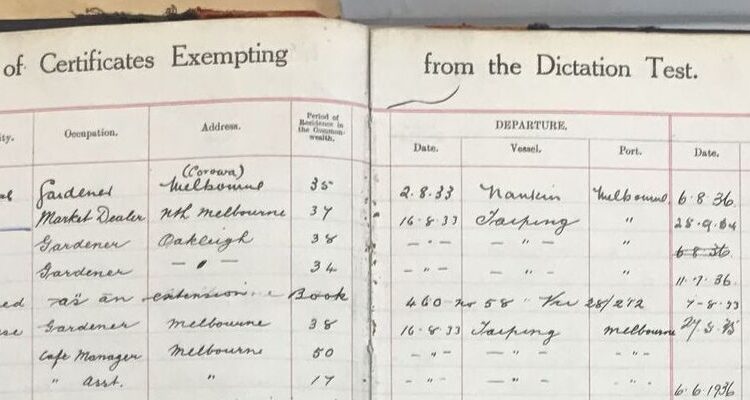 of Certificates Exempting from the Dictation Test.
ity. Occupation. Address. Period of Residence in the Common-wealth. DEPARTURE.
Date. Vessel. Port. Date.
(Corowa)
Gardener Melbourne 35 2.8.33 Nankin Melbourne 6.8.36
Market Dealer Nth Melbourne 37 16.8.33 Taiping " 28.9.34
Gardener Oakleigh 38 - " - - " - " 6.8.36
Gardener - " - 34 - " - - " - " 11.7.36
ed as an extension Book 460 no 58 Vic 28/272 7-8-33
se Gardener Melbourne 38 16.8.33 Taiping Melbourne
Cafe Manager Melbourne 50 - " - - " - - " -
" Asst. " 17 - " - - " - - " - 6.6.1936